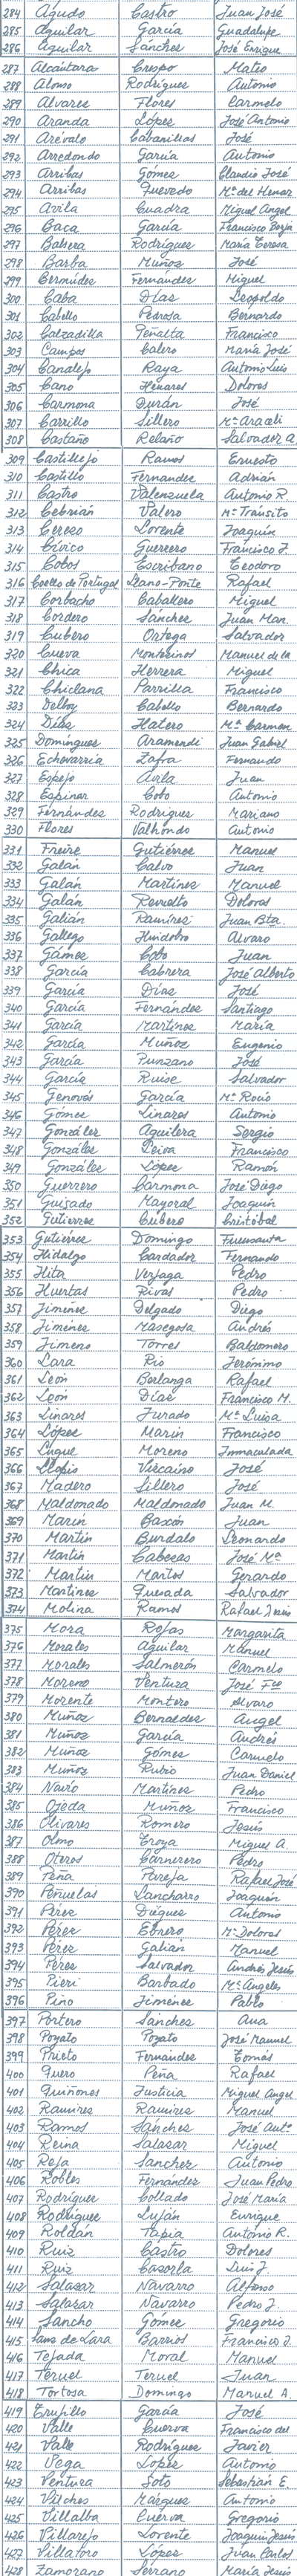 284 Agudo Castro Juan José
285 Aguilar García Guadalupe
286 Aguilar Sánchez José Enrique
287 Alcántara Crespo Mateo
288 Alonso Rodríguez Antonio
289 Alvarez Flores Carmelo
290 Aranda López José Antonio
291 Arévalo Cabanillas José
292 Arredondo García Antonio
293 Arribas Gómez Claudio José
294 Arribas Quevedo Mª del Henar
295 Avila Cuadra Miguel Angel
296 Baca García Francisco Borja
297 Balsera Rodríguez María Teresa
298 Barba Muñoz José
299 Bermúdez Fernández Miguel
300 Caba Días Leopoldo
301 Cabello Pedrosa Bernardo
302 Calzadilla Peñalta Francisco
303 Campos Calero María José
304 Candejo Raya Antonio Luis
305 Cano Henares Dolores
306 Carmona Durán José
307 Carrillo Sillero Mª Araceli
308 Castaño Relaño Salvador A.
309 Castillejo Ramos Ernesto
310 Castillo Fernández Adrián
311 Castro Valenzuela Antonio R.
312 Cebrián Valero Mª Tránsito
313 Cerezo Lorente Joaquín
314 Cívico Guerrero Francisco J.
315 Cobos Escribano Teodoro
316 Coello de Portugal Llano-Ponte Rafael
317 Corbacho Caballero Miguel
318 Cordero Sánchez Juan Man.
319 Cubero Ortega Salvador
320 Cueva Montesinos Manuel de la
321 Chica Herrera Miguel
322 Chiclana Parrilla Francisco
323 Delboy Cabello Bernardo
324 Díaz Matero Mª Carmen
325 Domínguez Aramendi Juan Gabriel
326 Echevarría Zafra Fernando
327 Espejo Avila Juan
328 Espinar Cobo Antonio
329 Fernández Rodríguez Mariano
330 Flores Valhondo Antonio
331 Freire Gutiérrez Manuel
332 Galán Calvo Juan
333 Galán Martínez Manuel
334 Galán Revuelto Dolores
335 Galián Ramírez Juan Bta.
336 Gallego Hindobro Alvaro
337 Gámez Cobo Juan
338 García Cabrera José Alberto
339 García Días José
340 García Fernández Santiago
341 García Martínez María
342 García Muñoz Eugenio
343 García Punzano José
344 García Ruise Salvador
345 Genovés García Mª Rocío
346 Gómez Linares Antonio
347 González Aguilera Sergio
348 González Leiva Francisco
349 González López Ramón
350 Guerrero Carmona José Diego
351 Guisado Mayoral Joaquín
352 Gutiérrez Cubero Cristóbal
353 Gutiérrez Domingo Fuensanta
354 Hidalgo Cardador Fernando
355 Hita Verjaga Pedro
356 Huertas Rivas Pedro
357 Jiménez Delgado Diego
358 Jiménez Masegosa Andrés
359 Jimeno Torres Baldomero
360 Lara Río Jerónimo
361 León Berlanga Rafael
362 León Díaz Francisco M.
363 Linares Jurado Mª Luisa
364 López Marín Francisco
365 Luque Moreno Inmaculada
366 Llopis Vizcaíno José
367 Madero Sillero José
368 Maldonado Maldonado Juan M.
369 Marín Baxón Juan
370 Martín Burdalo Leonardo
371 Martín Cabezas José Mª
372 Martín Martos Gerardo
373 Martínez Quesada Salvador
374 Molina Ramos Rafael Jesús
375 Mora Rojas Margarita
376 Morales Aguilar Manuel
377 Morales Salmerón Carmelo
378 Moreno Ventura José Fco
379 Morente Montero Alvaro
380 Muñoz Bernaldez Angel
381 Muñoz García Andrés
382 Muñoz Gómez Carmelo
383 Muñoz Rubio Juan Daniel
384 Navío Martínez Pedro
385 Ojeda Muñoz Francisco
386 Olivares Romero Jesús
387 Olmo Troya Miguel A.
388 Oteros Carnerero Pedro
389 Peña Pareja Rafael José
390 Peñuelas Lancharro Joaquín
391 Pérez Diéguez Antonio
392 Pérez Ebrero Mª Dolores
393 Pérez Galián Manuel
394 Pérez Salvador Andrés Jesús
395 Pieri Barbado Mª Angeles
396 Pino Jiménez Pablo
397 Portero Sánchez Ana
398 Poyato Poyato José Manuel
399 Prieto Fernández Tomás
400 Quero Peña Rafael
401 Quiñones Justicia Miguel Angel
402 Ramírez Ramírez Manuel
403 Ramos Sánchez José Antº
404 Reina Salazar Miguel
405 Reja Sánchez Antonio
406 Robles Fernández Juan Pedro
407 Rodríguez Collado José María
408 Rodríguez Luján Enrique
409 Roldán Tapia Antonio R.
410 Ruiz Castro Dolores
411 Ruiz Cazorla Luis J.
412 Salazar Navarro Alfonso
413 Salazar Navarro Pedro J.
414 Sancho Gómez Gregorio
415 Sanz de Lara Barrios Francisco J.
416 Tejada Moral Manuel
417 Teruel Teruel Juan
418 Tortosa Domingo Manuel A.
419 Trujillo García José
420 Valle Cuerva Francisco del
421 Valle Rodríguez Javier
422 Vega López Antonio
423 Ventura Soto Sebastián E.
424 Vilches Márquez Antonio
425 Villalba Cuerva Gregorio
426 Villarejo Lorente Joaquín Jesús
427 Villatoro López Juan Carlos
428 Zamorano Serrano María Jesús